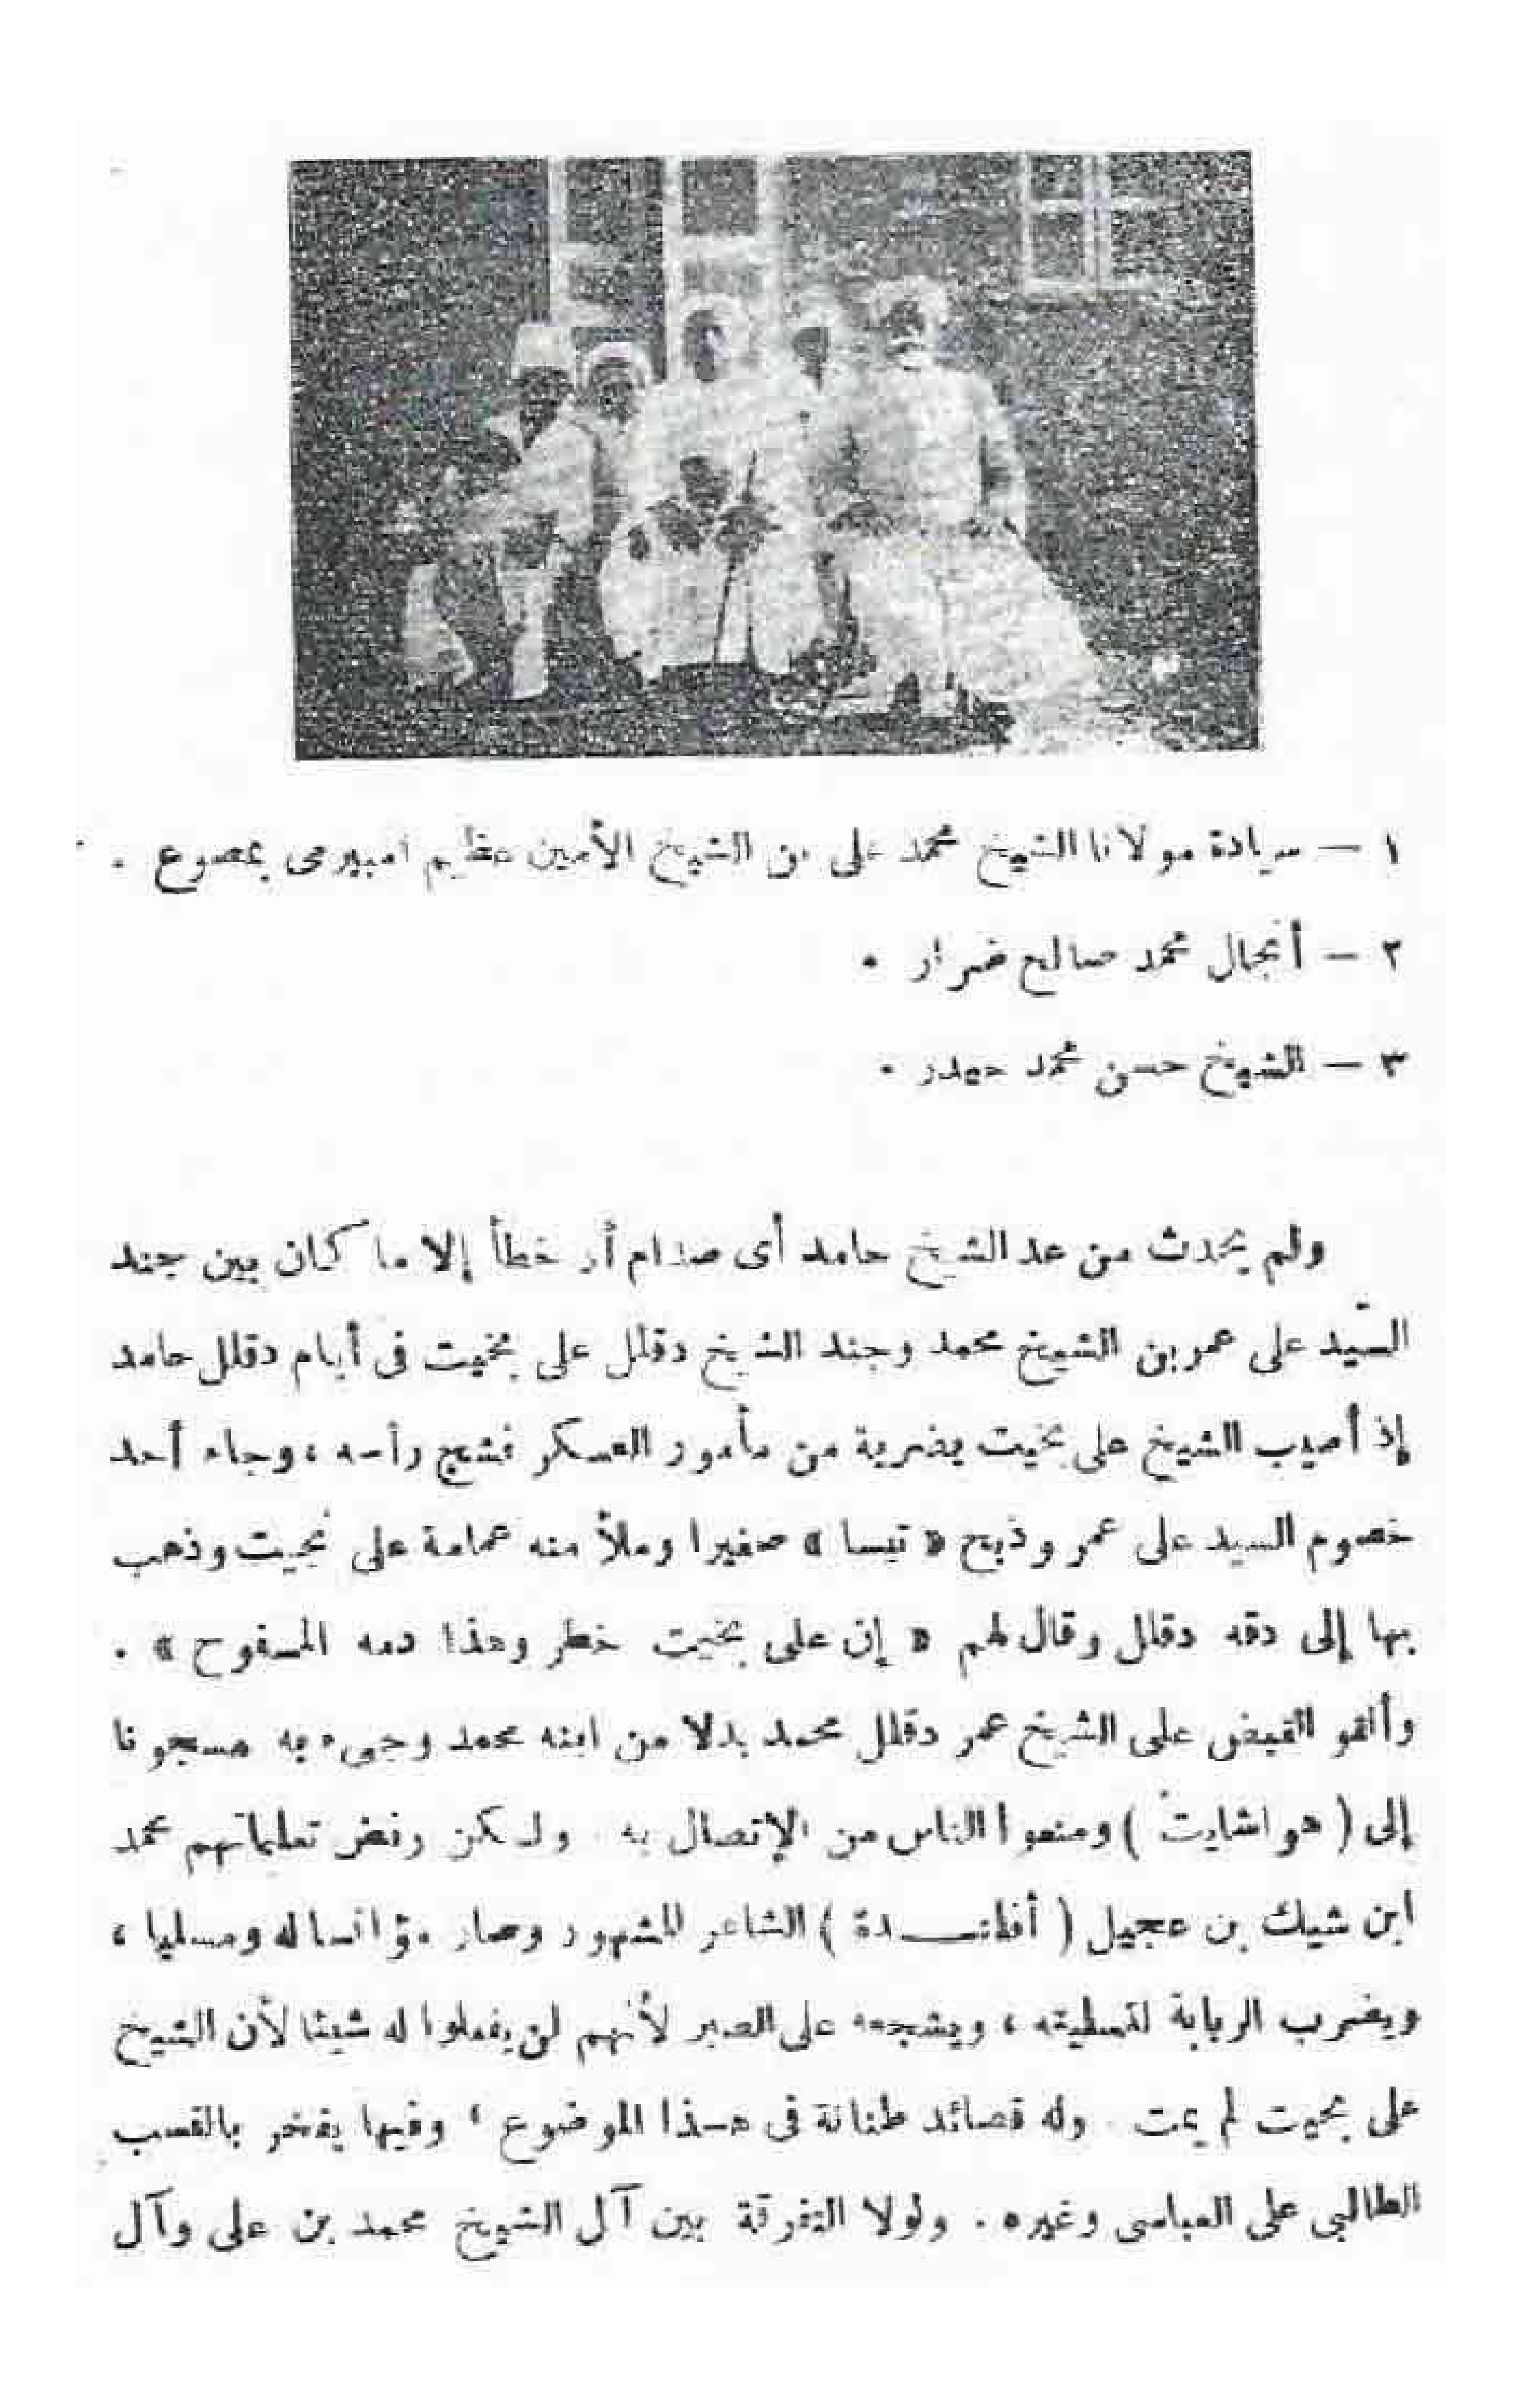 ١ — سيادة مولانا الشيخ محمد على بن الشيخ الأمين عظيم امبيرمى بمصوع .
٢ — أنجال محمد صالح ضرار .
٣ — الشيخ حسن محمد حيدر .
ولم يحدث من عد الشيخ حامد أى صدام أو خطأ إلا ما كان بين جند
السيّد على عمر بن الشيخ محمد وجند الشيخ دقلل على بخيت فى أيام دقلل حامد
إذ أصيب الشيخ على بخيت بضربة من مأمور العسكر فشج رأسه ، وجاء أحد
خصوم السيد على عمر وذبح « تيسا » صغيرا وملأ منه عمامة على بخيت وذهب
بها إلى دقه دقلل وقال لهم « إن على بخيت خطر وهذا دمه المسفوح » .
وألقو القبض على الشيخ عمر دقلل محمد بدلا من ابنه محمد وجىء به مسجونا
إلى ( هواشايت ) ومنعوا الناس من الإتصال به ولكن رفض تعليماتهم محمد
ابن شيك بن عجيل ( ) الشاعر المشهور وصار مؤانسا له ومسليا ،
ويضرب الربابة لتسليته ، ويشجعه على الصبر لأنهم لن يفعلوا له شيئا لأن الشيخ
على بخيت لم يمت وله قصائد طنانة فى هـذا الموضوع ، وفيها يفخر بالنسب
الطالبى على العباسى وغيره . ولولا التفرقة بين آل الشيخ محمد بن على وآل